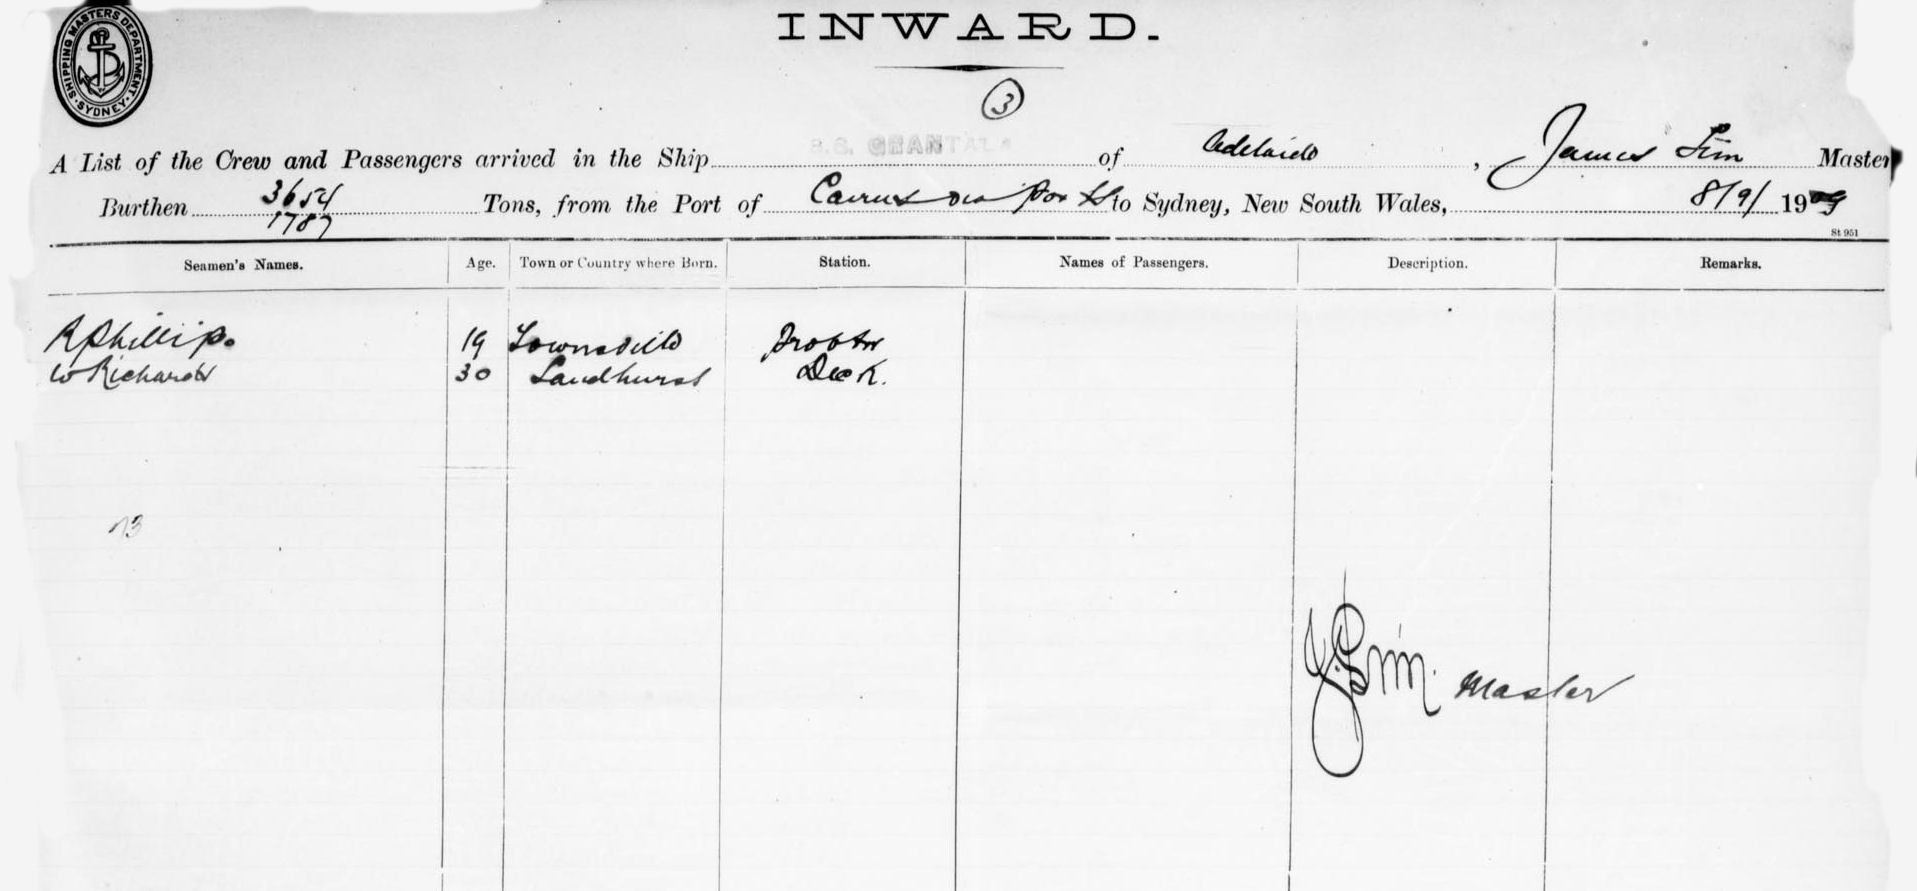 SHIPPING MASTERS DEPARTMENT SYDNEY
INWARD.
3
A List of the Crew and Passengers arrived in the Ship S.S. GRANTALA of Adelaide, James Sim Master
Burthen 3654 Tons, from the Port of Cairns via ports to Sydney, New South Wales, 8/9/1909
1787
St 951
Seamen's Names. Age. Town or Country where Born. Station. Names of Passengers. Description. Remarks.
R Phillips. 19 Townsville
W Richards 30 Sandhurst Deck.
73
J. Sim. Master